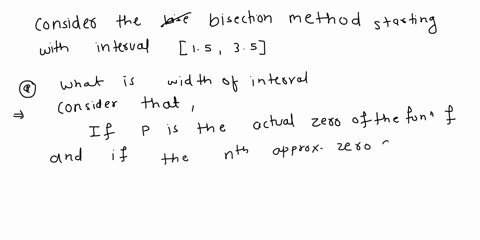 Consider the bisection method starting
with interval [1.5, 3.5]
ⓐ What is width of interval
⇒ Consider that,
If P is the actual zero of the funⁿ f
and if the nᵗʰ approx. zero